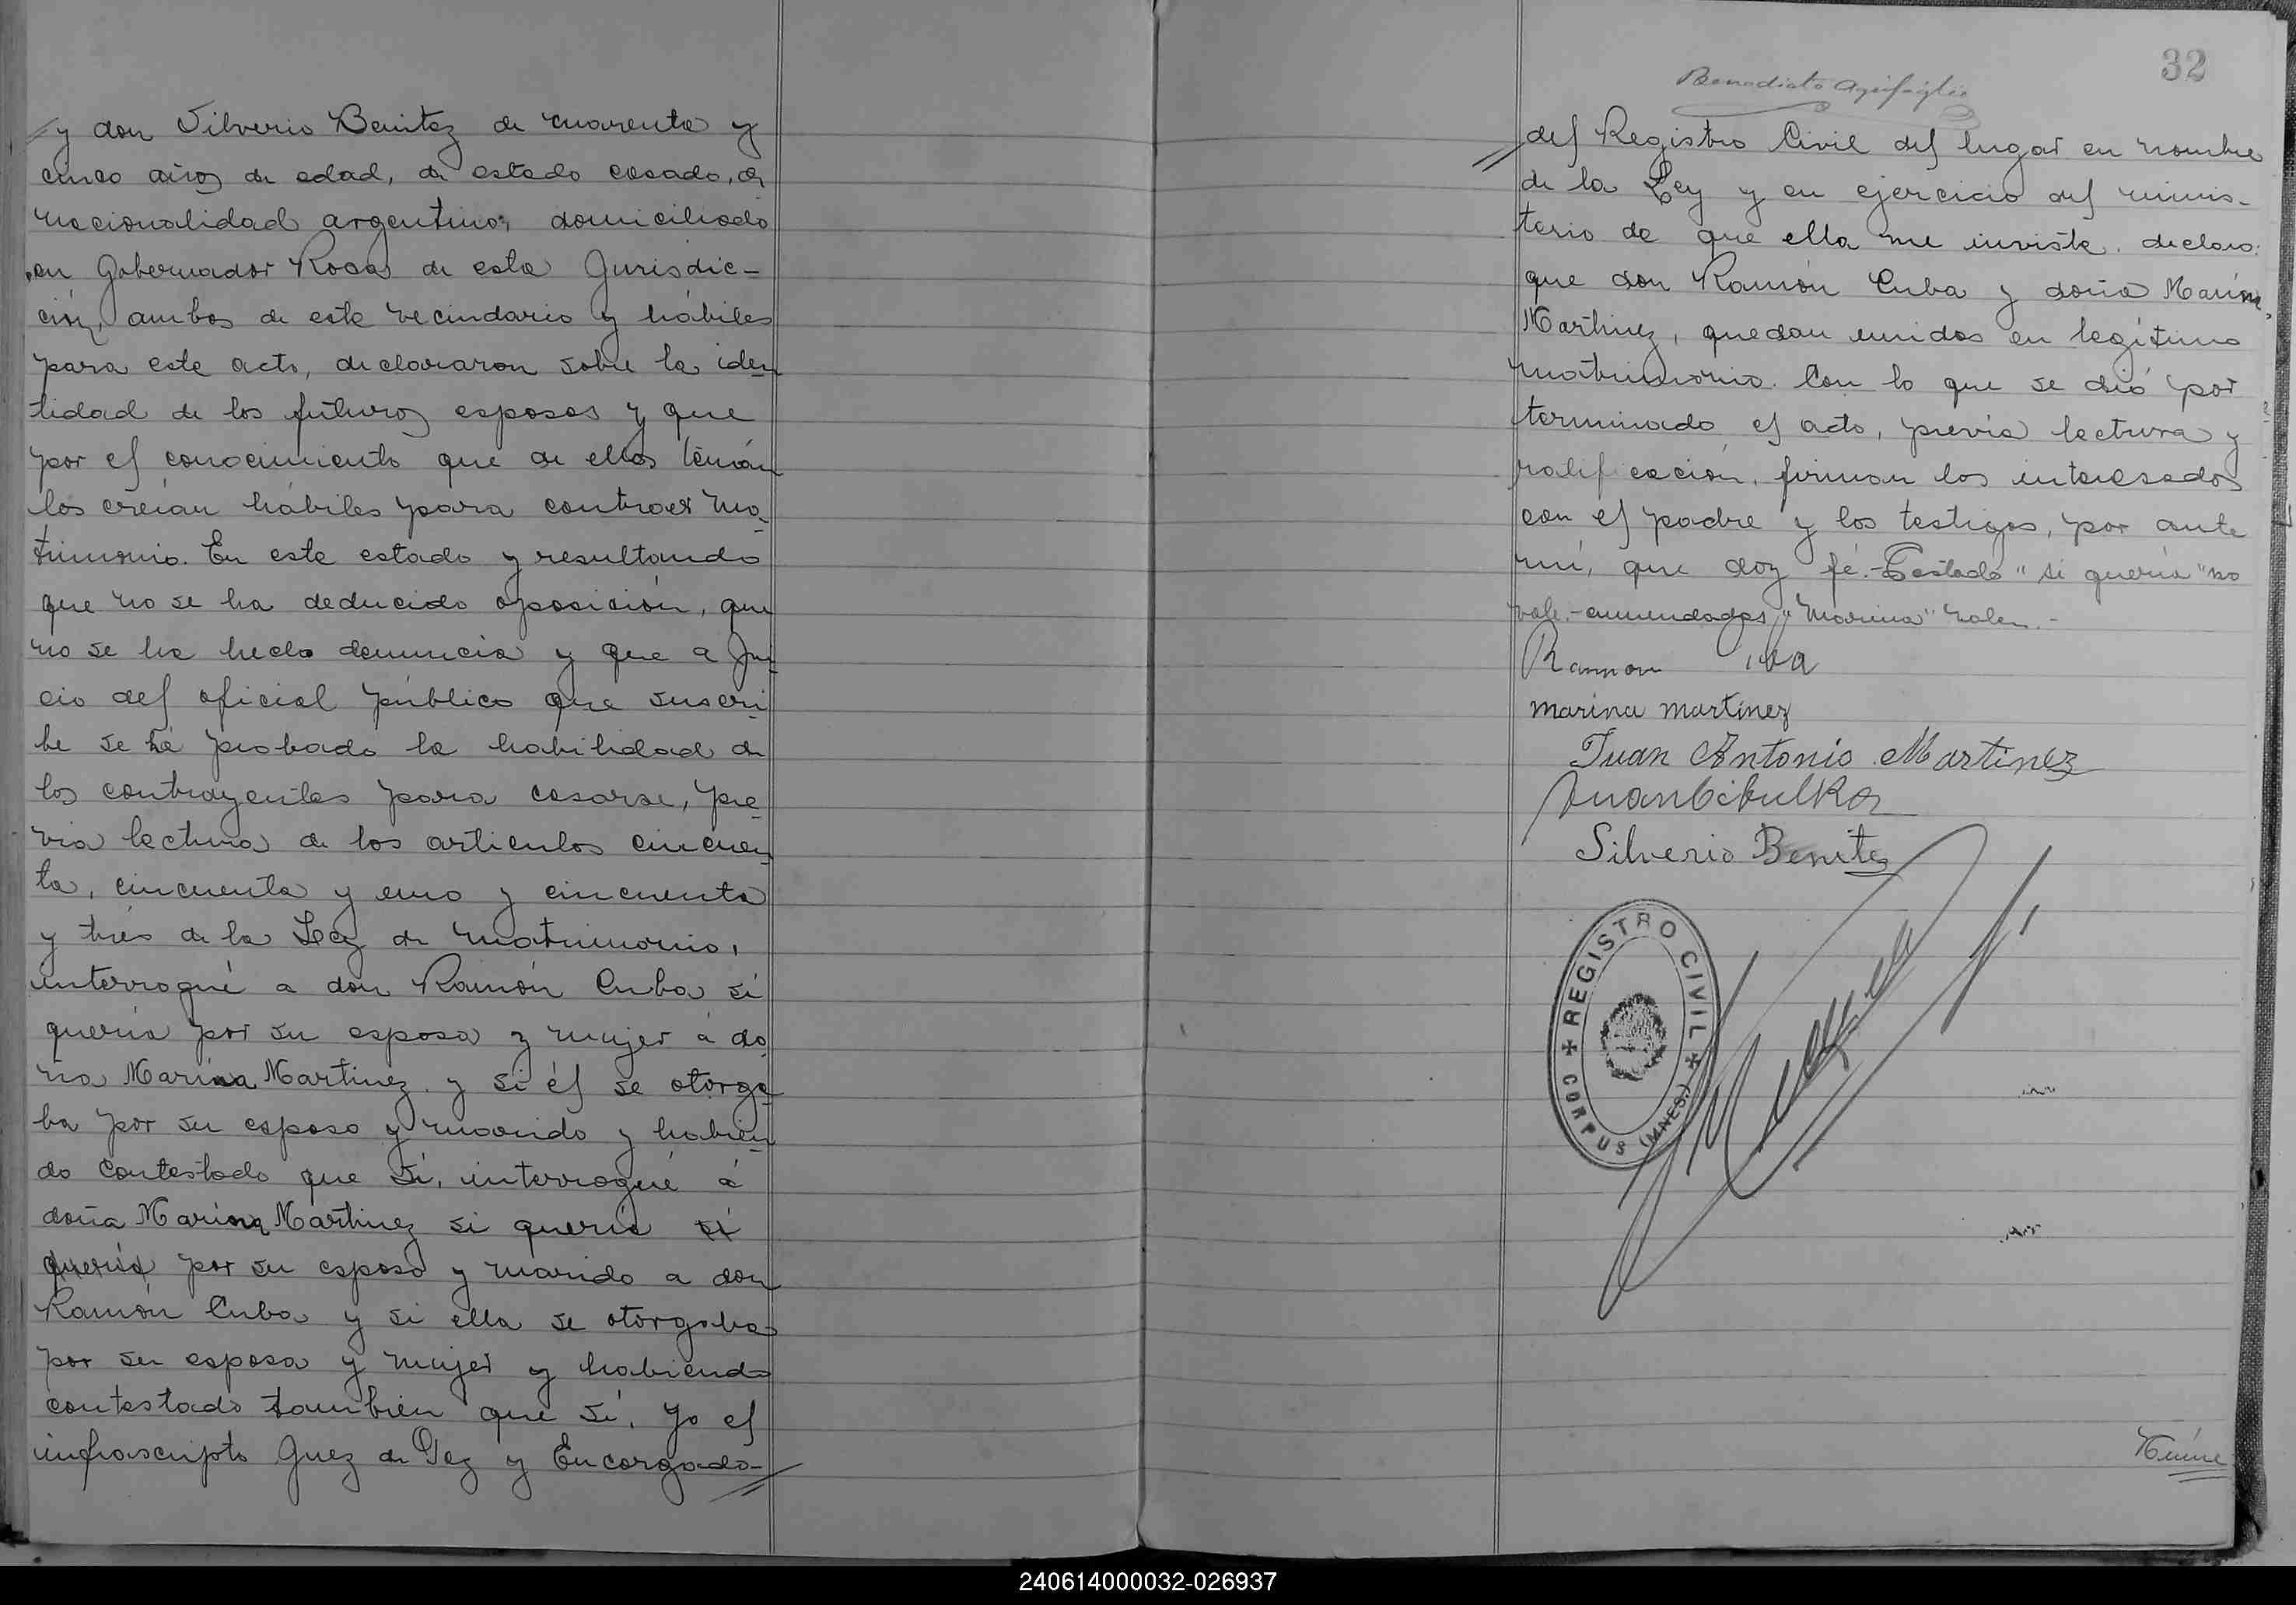 y don Silverio Benitez de cuarenta y
cinco años de edad, de estado casado, de
nacionalidad argentino, domiciliado
en Gobernador Roca de esta Jurisdic-
ción, ambos de este vecindario y hábiles
para este acto, declararon sobre la iden
tidad de los futuros esposos y que
por el conocimiento que de ellos tenían
los creían hábiles para contraer ma-
trimonio. En este estado y resultando
que no se ha deducido oposición, que
no se ha hecho denuncia y que a Jui-
cio del oficial público que suscri-
be se há probado la habilidad de
los contrayentes para casarse, pre-
via lectura de los articulos cincuen-
ta, cincuenta y uno y cincuenta
y trés de la Ley de matrimonio,
interrogué a don Ramón Cuba si
quería por su esposa y mujer á do-
ña Marina Martinez y si él se otorga-
ba por su esposo y marido y habien-
do contestado que Sí, interrogué á
doña Marina Martinez si quería si
quería por su esposo y marido a don
Ramón Cuba y si ella se otorgaba
por su esposa y mujer y habiendo
contestado también que Sí, Yo el
infrascripto Juez de Paz y Encargado
32
Benedicto
del Registro Civil del lugar en nombre
de la Ley y en ejercicio del minis-
terio de que ella me inviste, declaro:
que don Ramón Cuba y doña Marina
Martinez, quedan unidos en legítimo
matrimonio. Con lo que se dió por
terminado el acto, previa lectura y
ratificación, firman los interesados
con el padre y los testigos, por ante
mí, que doy fé.-Testado "si quería" no
vale.-enmendados "Marina" valen.-
Ramon
marina martinez
Juan Antonio Martinez
Juan Cibulka
Silverio Benitez
REGISTRO CIVIL
CORPUS (MNES.)
240614000032-026937